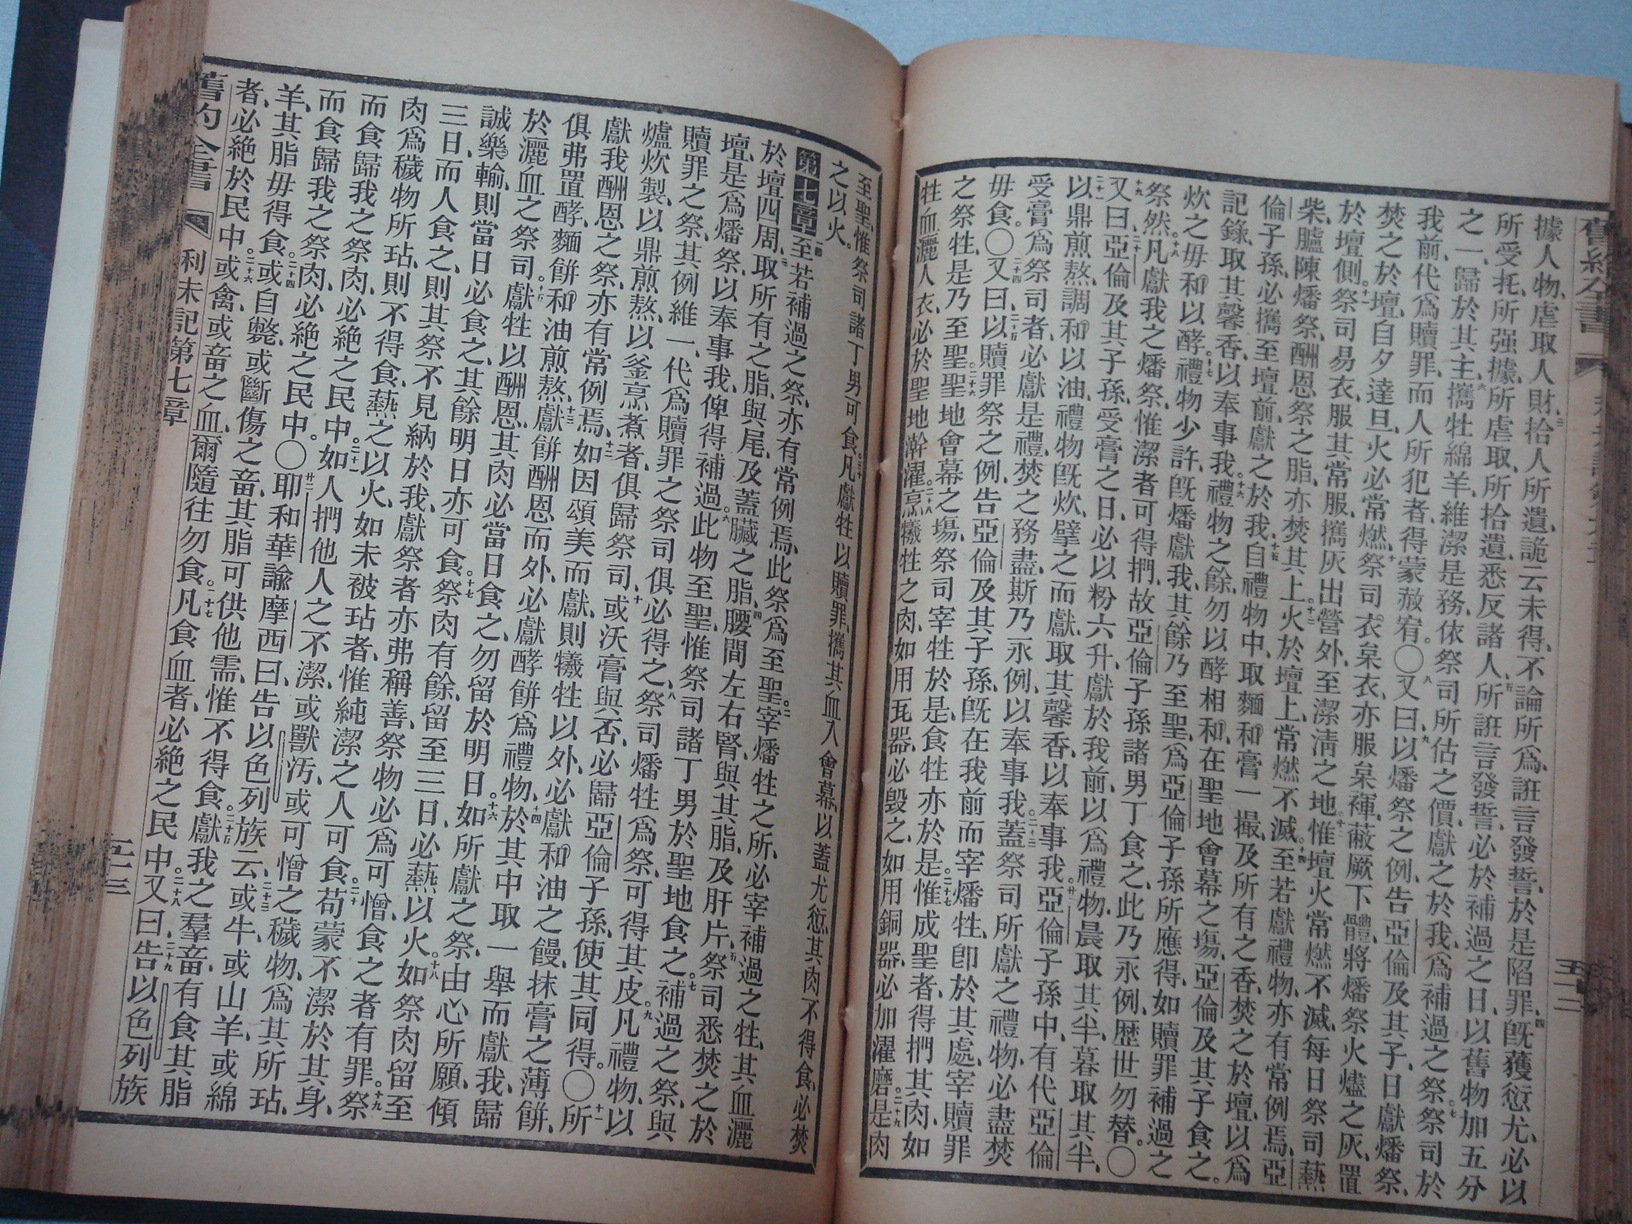 舊約全書
據人物、虐取人財、拾人所遺、詭云未得、不論所爲、誑言發誓、於是陷罪、四既獲愆尤、必以
所受托、所强據、所虐取、所拾遺、悉反諸人、五所誑言發誓、必於補過之日、以舊物加五分
之一、歸於其主、六攜牡綿羊、維潔是務、依祭司所估之價、獻之於我、爲補過之祭、七祭司於
我前、代爲贖罪、而人所犯者、得蒙赦宥。〇八又曰、九以燔祭之例、告亞倫及其子曰、獻燔祭、
焚之於壇、自夕達旦、火必常燃、十祭司衣枲衣、亦服枲褌、蔽厥下體、將燔祭火燼之灰、置
於壇側、十一祭司易衣服其常服、攜灰出營外、至潔淸之地、十二惟壇火常燃不滅、每日祭司爇
柴、臚陳燔祭、酬恩祭之脂、亦焚其上、十三火於壇上、常燃不滅。十四至若獻禮物、亦有常例焉、亞
倫子孫、必攜至壇前、獻之於我、十五自禮物中、取麵和膏一撮、及所有之香、焚之於壇、以爲
記錄、取其馨香、以奉事我。十六禮物之餘、勿以酵相和、在聖地會幕之塲、亞倫及其子食之。
炊之毋和以酵、十七禮物少許、既燔獻我、其餘乃至聖、爲亞倫子孫所應得、如贖罪補過之
祭然。十八凡獻我之燔祭、惟潔者可得捫、故亞倫子孫諸男丁食之、此乃永例、歷世勿替。〇
十九又曰、二十亞倫及其子孫、受膏之日、必以粉六升、獻於我前、以爲禮物、晨取其半、暮取其半、
二十一以鼎煎熬、調和以油、禮物既炊、擘之而獻、取其馨香、以奉事我。廿二亞倫子孫中、有代亞倫
受膏爲祭司者、必獻是禮、焚之務盡、斯乃永例、以奉事我。二十三蓋祭司所獻之禮物、必盡焚
毋食。〇二十四又曰、二十五以贖罪祭之例、告亞倫及其子孫、既在我前而宰燔牲、卽於其處宰贖罪
之祭牲、是乃至聖。二十六聖地會幕之塲、祭司宰牲、於是食牲、亦於是。二十七惟成聖者、得捫其肉、如
牲血灑人衣、必於聖地澣濯。二十八烹犧牲之肉、如用瓦器、必毀之、如用銅器、必加濯磨。二十九是肉
至聖、惟祭司諸丁男可食。三十凡獻牲以贖罪、攜其血入會幕、以蓋尤愆、其肉不得食、必焚
之以火。
第七章一至若補過之祭、亦有常例焉、此祭爲至聖。二宰燔牲之所、必宰補過之牲、其血灑
於壇四周、三取所有之脂與尾、及蓋臟之脂、四腰間左右腎與其脂、及肝片、五祭司悉焚之於
壇、是爲燔祭、以奉事我、俾得補過。六此物至聖、惟祭司諸丁男於聖地食之。七補過之祭、與
贖罪之祭、其例維一、代爲贖罪之祭司、俱必得之。八祭司燔牲爲祭、可得其皮。九凡禮物、以
爐炊製、以鼎煎熬、以釜烹煮者、俱歸祭司、十或沃膏與否、必歸亞倫子孫、使其同得。〇十一所
獻我酬恩之祭、亦有常例焉、十二如因頌美而獻、則犧牲以外、必獻和油之饅、抹膏之薄餅、
俱弗置酵、麵餅和油煎熬、十三獻餅酬恩而外、必獻酵餅爲禮物、十四於其中取一、舉而獻我、歸
於灑血之祭司、十五獻牲以酬恩、其肉必當日食之、勿留於明日、十六如所獻之祭、由心所願、傾
誠樂輸、則當日必食之、其餘明日亦可食、十七祭肉有餘、留至三日、必爇以火、十八如祭肉留至
三日、而人食之、則其祭不見納於我、獻祭者亦弗稱善、祭物必爲可憎、食之者有罪。十九祭
肉爲穢物所玷、則不得食、爇之以火、如未被玷者、惟純潔之人可食、二十苟蒙不潔於其身、
而食歸我之祭肉、必絕之民中。二十一如人捫他人之不潔、或獸汚、或可憎之穢物、爲其所玷、
而食歸我之祭肉、必絕之民中。〇廿二耶和華諭摩西曰、二十三告以色列族云、或牛、或山羊、或綿
羊、其脂毋得食。二十四或自斃、或斷傷之畜、其脂可供他需、惟不得食、二十五獻我之羣畜、有食其脂
者、必絕於民中。二十六或禽、或畜之血、爾隨往勿食。二十七凡食血者、必絕之民中。二十八又曰、二十九告以色列族
舊約全書
利未記第七章